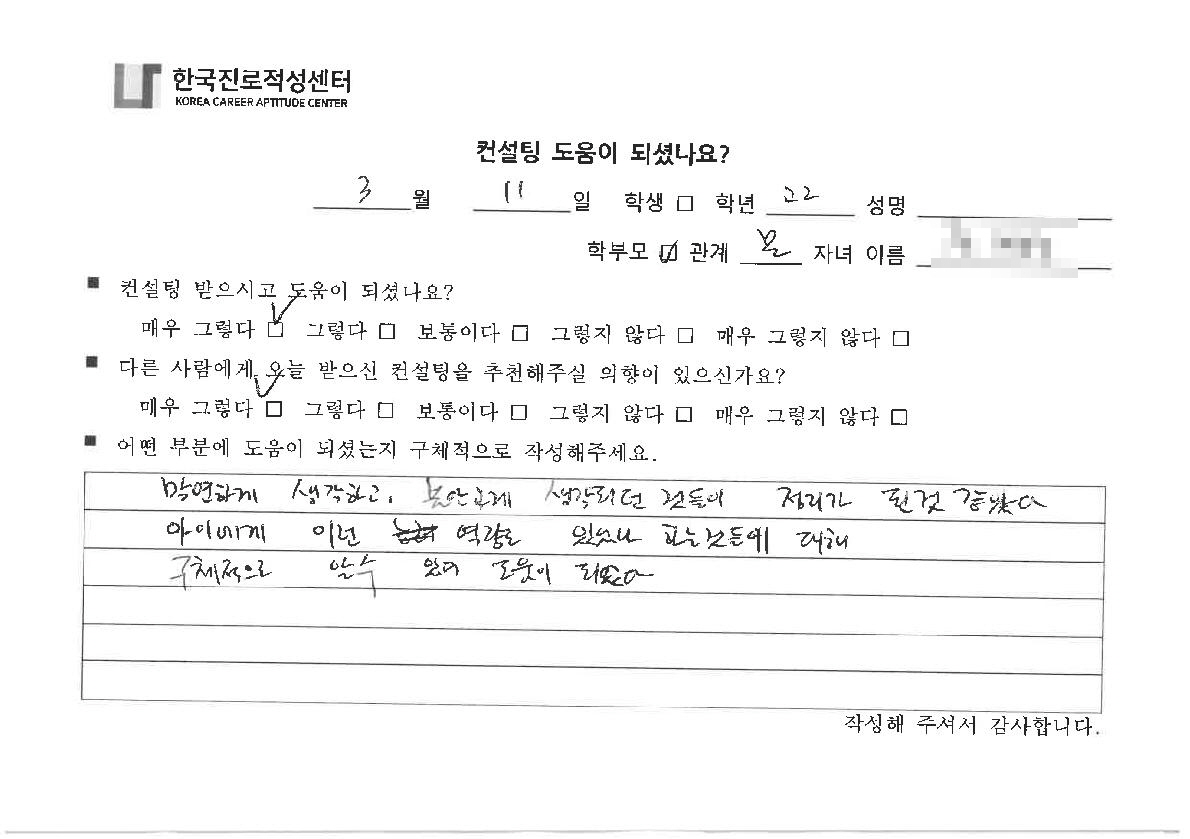 한국진로적성센터
KOREA CAREER APTITUDE CENTER
컨설팅 도움이 되셨나요?
3 월 11 일 학생 □ 학년 고2 성명
학부모 ☑ 관계 모 자녀 이름
■ 컨설팅 받으시고 도움이 되셨나요?
매우 그렇다 ☑ 그렇다 □ 보통이다 □ 그렇지 않다 □ 매우 그렇지 않다 □
■ 다른 사람에게 오늘 받으신 컨설팅을 추천해주실 의향이 있으신가요?
매우 그렇다 ☑ 그렇다 □ 보통이다 □ 그렇지 않다 □ 매우 그렇지 않다 □
■ 어떤 부분에 도움이 되셨는지 구체적으로 작성해주세요.
막연하게 생각하고, 불안하게 생각되던 것들이 정리가 된것 같았다
아이에게 이런 역량도 있었나 하는것들에 대해
구체적으로 알수 있어 도움이 되었다
작성해 주셔서 감사합니다.